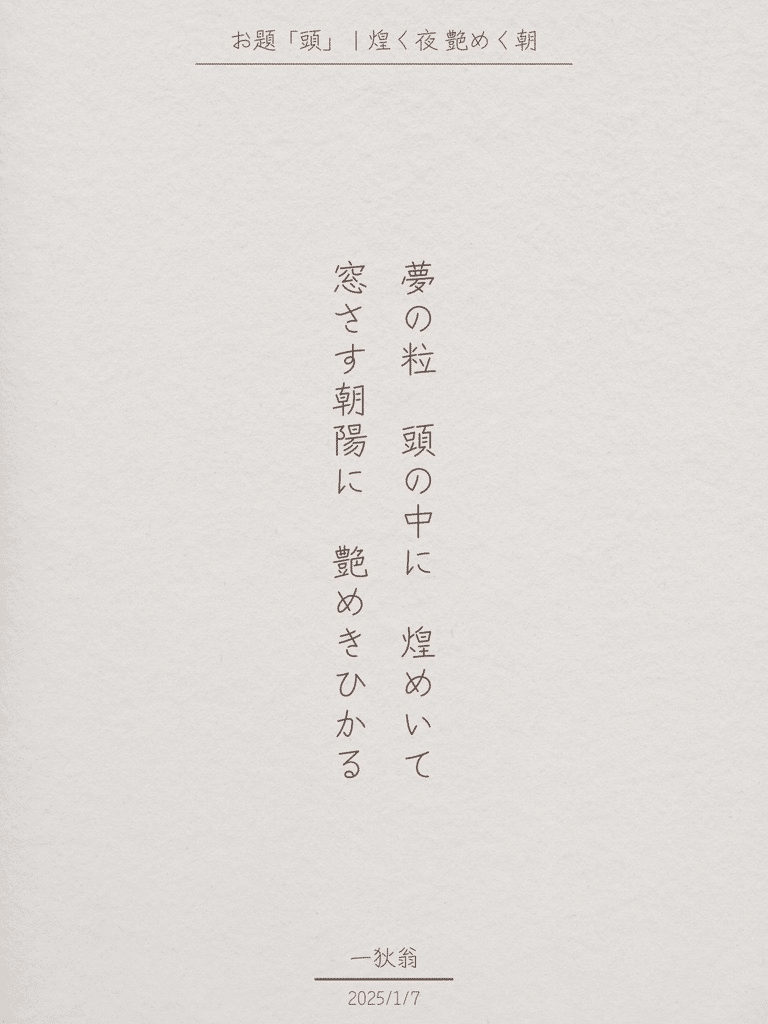 お題「頭」｜煌く夜 艶めく朝
夢の粒　頭の中に　煌めいて
窓さす朝陽に　艶めきひかる
一狄翁
2025/1/7